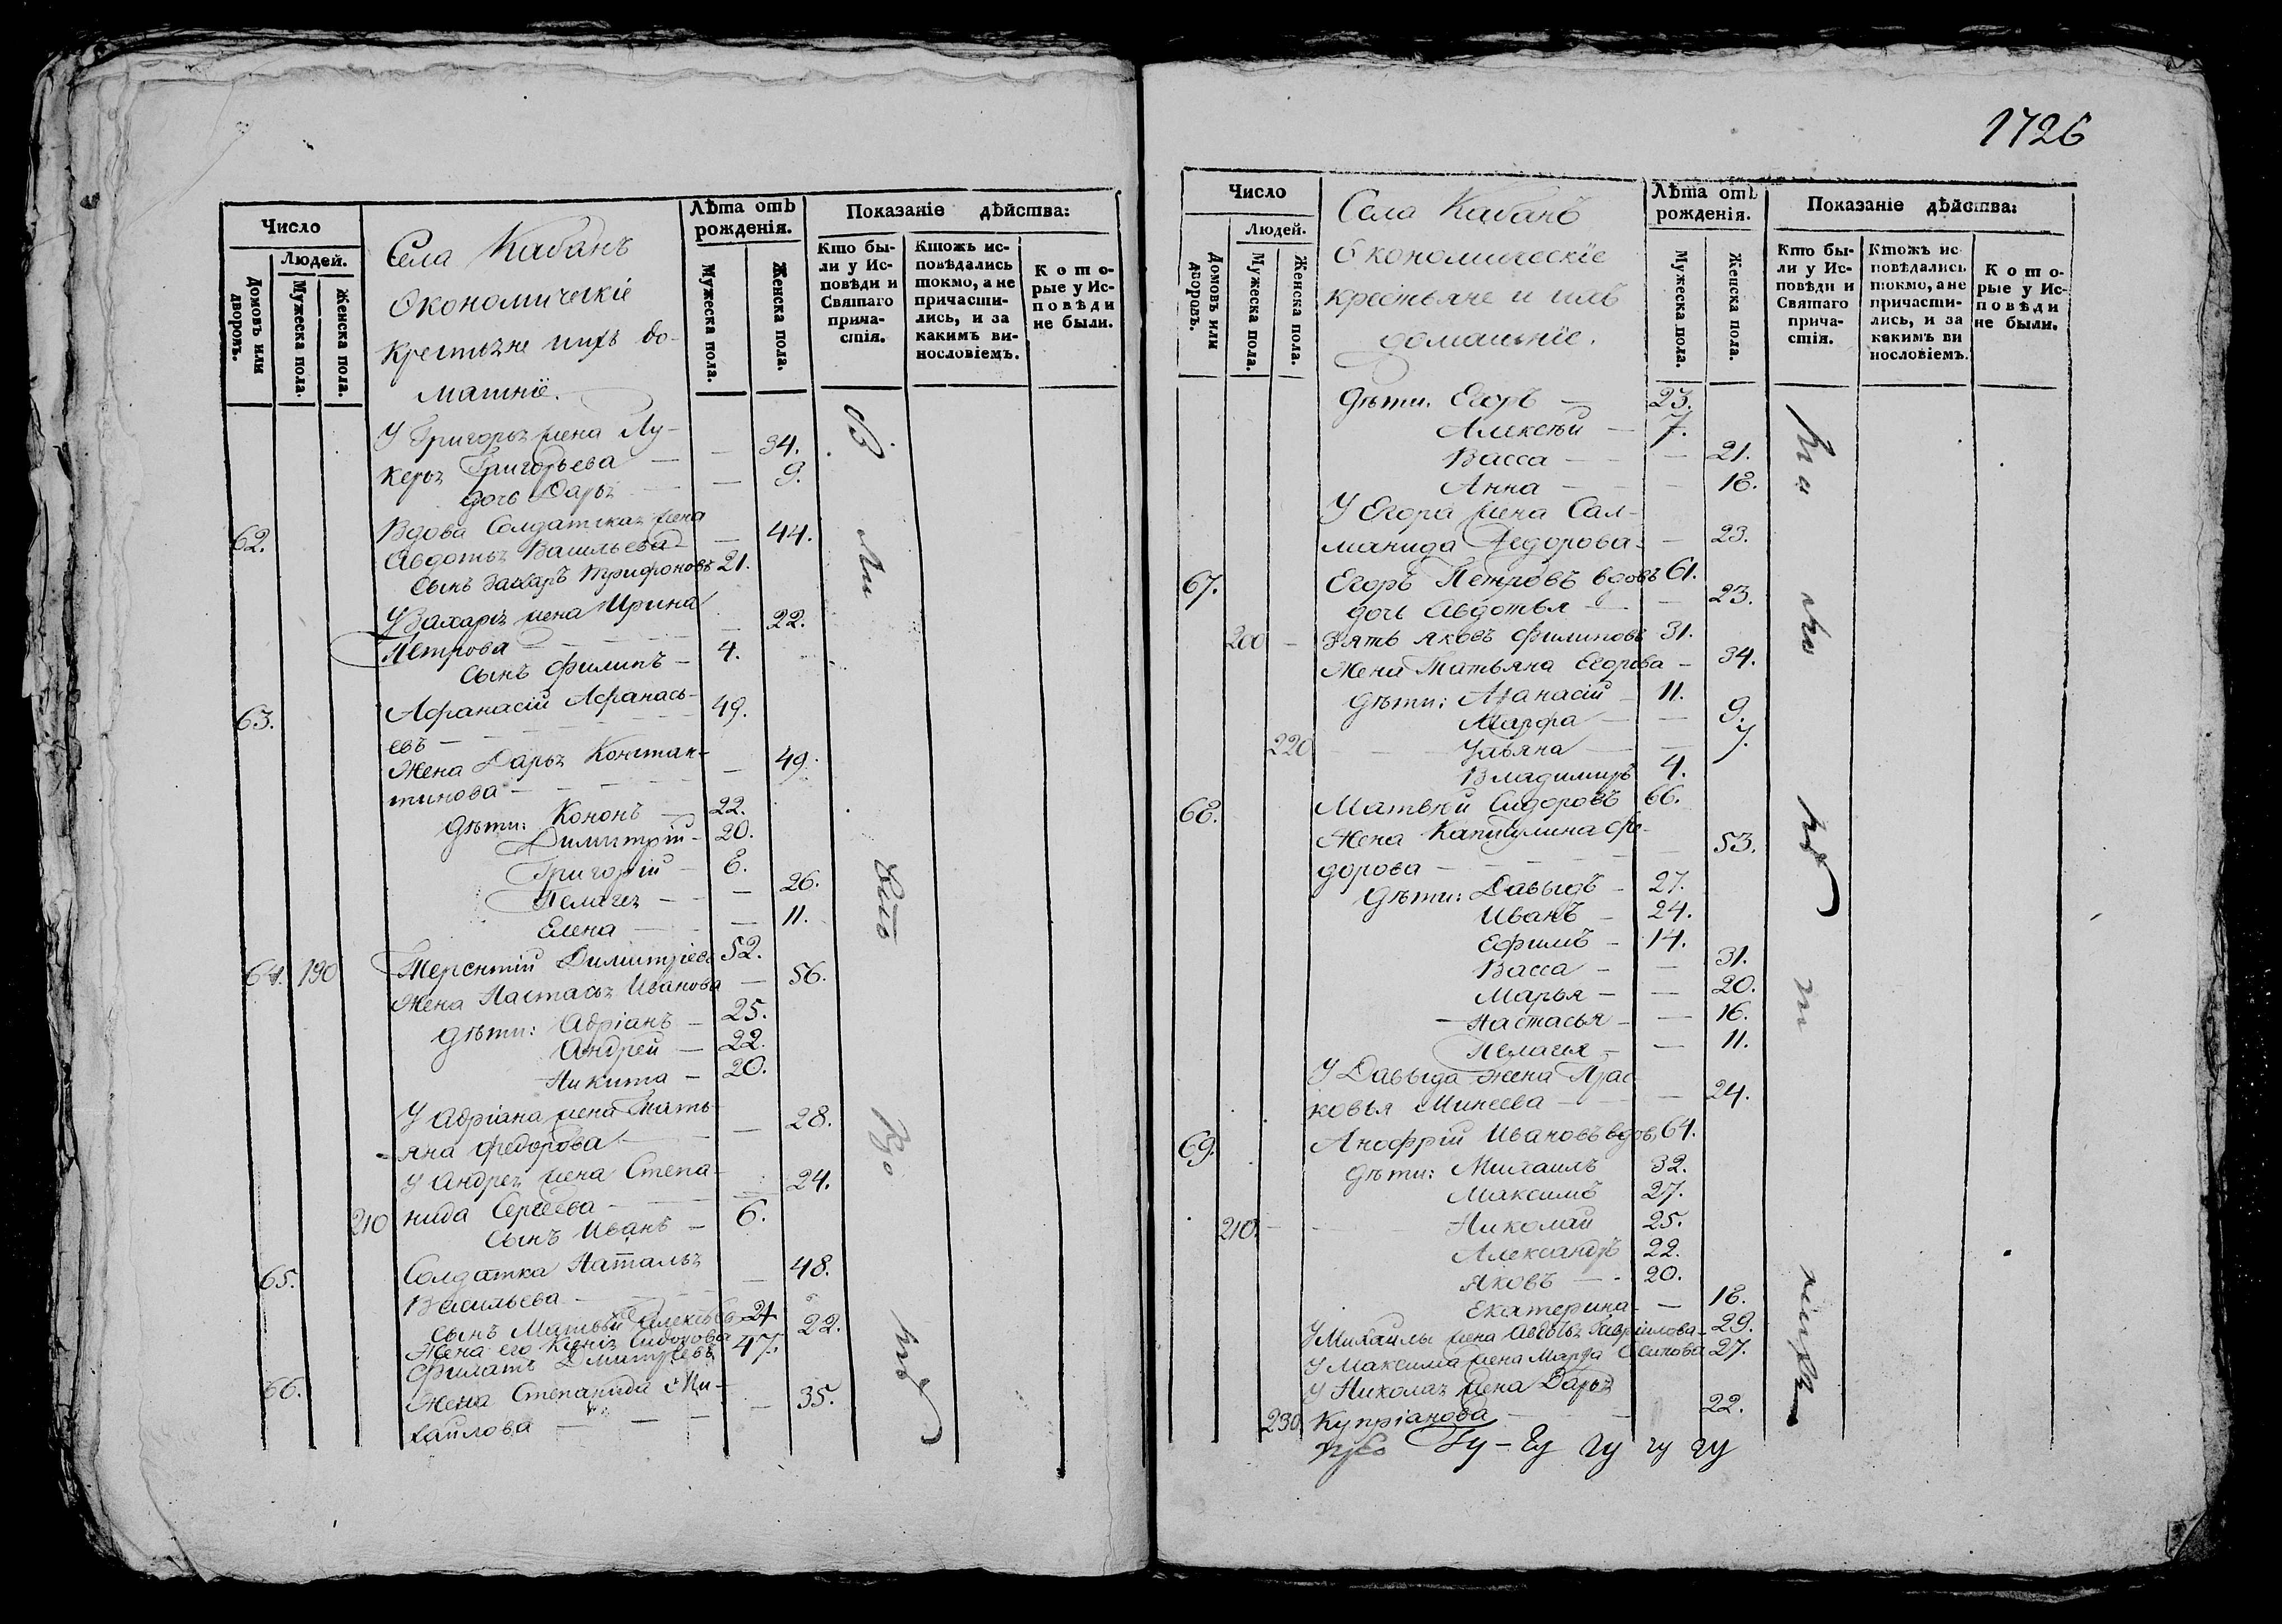 Число
Людей.
Домовъ или дворовъ.
Мужеска пола.
Женска пола.
Села Кабанъ
Экономическіе
крестьяне ихъ до-
машніе.
Лѣта отъ рожденія.
Мужеска пола.
Женска пола.
Показаніе дѣйства:
Кто бы-
ли у Ис-
повѣди и
Святаго
прича-
стія.
Ктожъ ис-
повѣдались
токмо, а не
причасти-
лись, и за
какимъ ви-
нословіемъ.
Кото-
рые у Ис-
повѣди
не были.
У Григорья жена Лу-
керья Григорьева — — 34.
дочь Дарья — — 9.
62. Вдова Солдатская жена
Авдотья Васильева — 44.
сынъ Захаръ Трифоновъ 21.
У Захарья жена Ирина
Петрова — — 22.
сынъ Филипъ — 4.
63. Афанасій Афанась-
евъ — 49.
Жена Дарья Констан-
тинова — — 49.
Дѣти: Кононъ — 22.
Димитрій — 20.
Григорій — 8.
Пелагея — — 26.
Елена — — 11.
64. 190 Терентій Димитріевъ 52.
Жена Настасья Иванова — 56.
Дѣти: Адріанъ — 25.
Андрей — 22.
Никита — 20.
У Адріана жена Тать-
яна Федорова — — 28.
У Андрея жена Степа-
210 нида Сергеева — 24.
сынъ Иванъ — 6.
65. Солдатка Наталья
Васильева — 48.
сынъ Матвѣй Алексѣевъ 21
Жена его Ксенія Сидорова 22.
66. Филатъ Дмитріевъ 47.
Жена Степанида Ми-
хайлова — — — 35.
1726
Число
Людей.
Домовъ или дворовъ.
Мужеска пола.
Женска пола.
Села Кабанъ
Экономическіе
крестьяне и ихъ
домашніе.
Лѣта отъ рожденія.
Мужеска пола.
Женска пола.
Показаніе дѣйства:
Кто бы-
ли у Ис-
повѣди и
Святаго
прича-
стія.
Ктожъ ис-
повѣдались
токмо, а не
причасти-
лись, и за
какимъ ви
нословіемъ.
Кото-
рые у Ис-
повѣди
не были.
Дѣти. Егоръ — 23.
Алексѣй — 7.
Васса — — 21.
Анна — — 18.
У Егора жена Сал-
манида Федорова — 23.
67. Егоръ Петровъ вдовъ 61.
дочь Авдотья — — 23.
200 — Зять Яковъ Филиповъ 31.
Жена Татьяна Егорова — 34.
Дѣти: Афанасій — 11.
Марфа — — 9.
220 Ульяна — — 7.
Владимиръ 4.
68. Матвѣй Сидоровъ 66.
Жена Капитулина Фе-
дорова — — 53.
Дѣти: Давыдъ — 27.
Иванъ — 24.
Ефимъ — 14.
Васса — — 31.
Марья — — 20.
Настасья — — 16.
Пелагея — — 11.
У Давыда жена Прас-
ковья Минеева — — 24.
69. Анофрій Ивановъ вдов. 64.
Дѣти: Михаилъ 32.
Максимъ 27.
210. — Николай 25.
Александръ 22.
Яковъ — 20.
Екатерина — — 18.
У Михайлы жена Авдотья Гаврилова — 29.
У Максима жена Марфа Осипова 27.
У Николая жена Дарья
230 Купріанова — — 22.